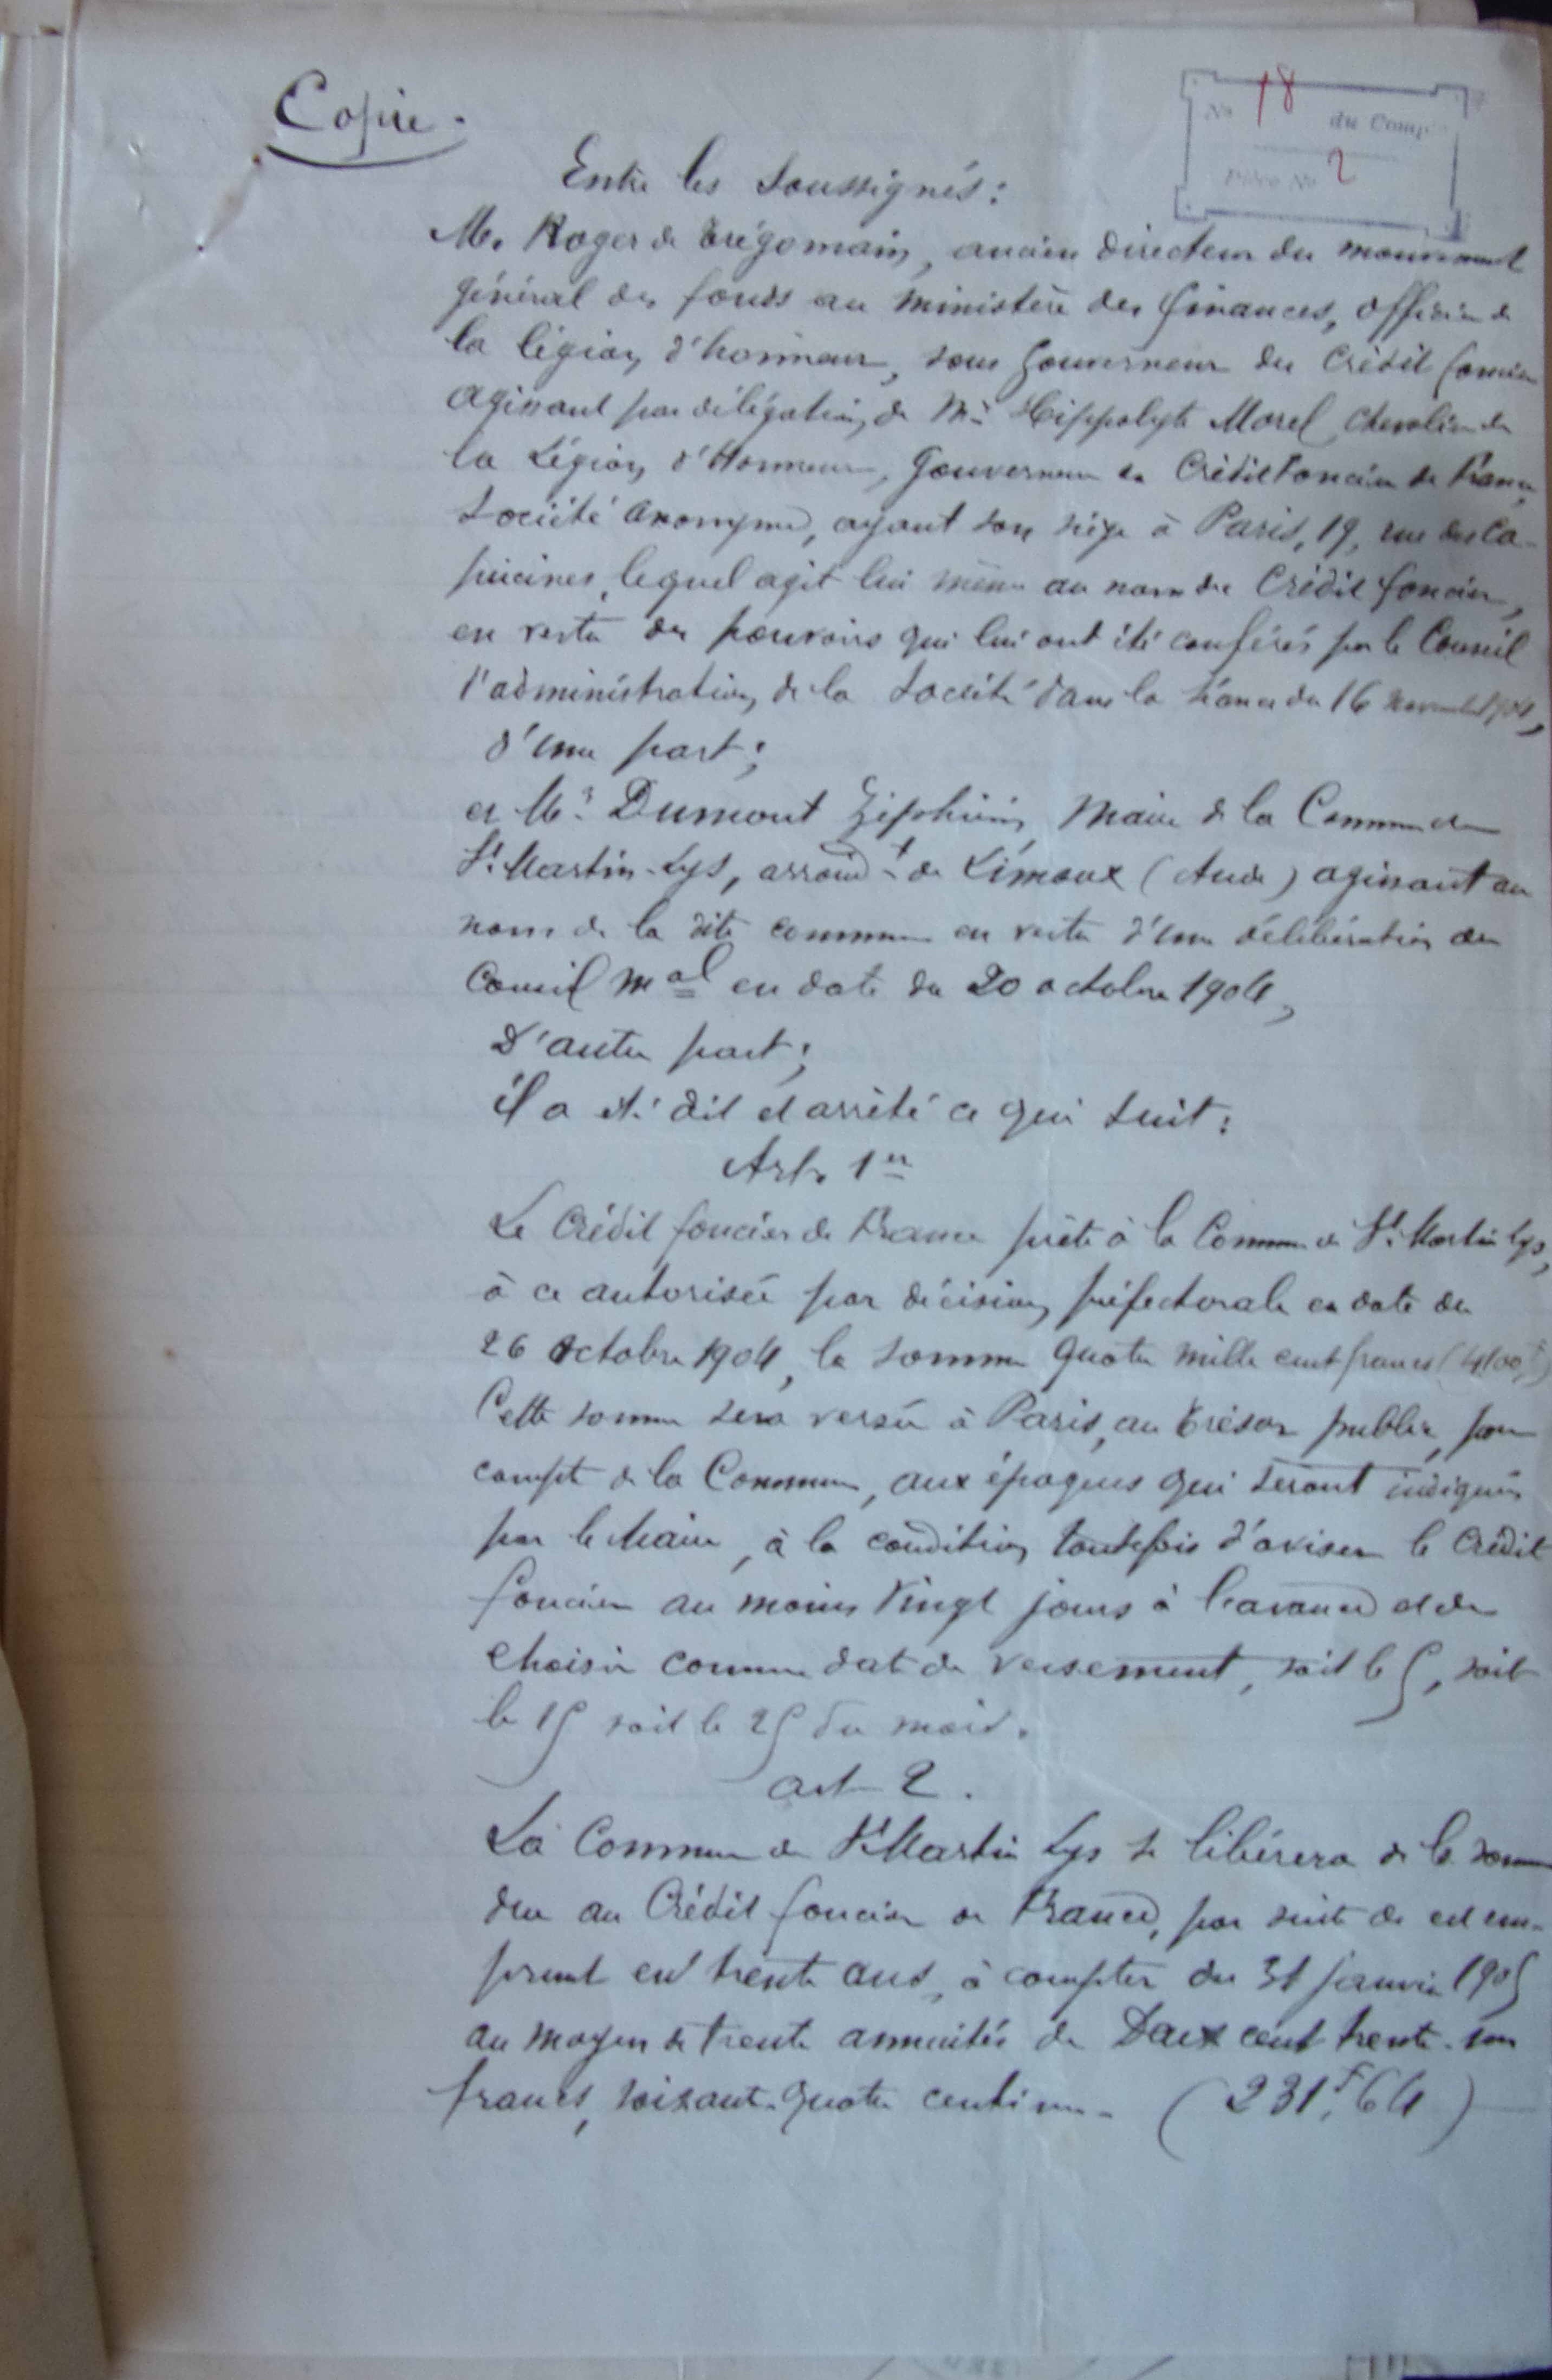 Copie.
No 18 du Comp
Pièce No 2
Entre les Soussignés:
Mr. Roger de Trégomain, ancien directeur du mouvement
général des fonds au ministère des finances, officier de
la légion d'honneur, sous Gouverneur du Crédit foncier
agissant par délégation de Mr Hippolyte Morel chevalier de
la Légion d'Honneur, Gouverneur du Crédit Foncier de France,
Société anonyme, ayant son siège à Paris, 19, rue des Ca-
pucines, lequel agit lui même au nom du Crédit foncier,
en vertu des pouvoirs qui lui ont été conférés par le Conseil
d'administration de la Société dans la séance du 16 novembre 1904,
d'une part;
et Mr Dumont Zéphirin Maire de la Commune de
St. Martin-Lys, arrondt de Limoux (Aude) agissant au
nom de la dite commune en vertu d'une délibération du
Conseil mal en date du 20 octobre 1904,
D'autre part;
il a été dit et arrêté ce qui suit:
Art. 1er
Le Crédit foncier de France prête à la Commune de St. Martin Lys,
à ce autorisée par décision préfectorale en date du
26 Octobre 1904, la somme quatre mille cent francs (4100f)
Cette somme sera versée à Paris, au Trésor public, pour
compte de la Commune, aux époques qui seront indiquées
par le Maire, à la condition toutefois d'aviser le Crédit
foncier au moins vingt jours à l'avance et de
choisir comme date de versement, soit le 5, soit
le 15 soit le 25 du mois.
art 2.
La Commune de St. Martin Lys se libérera de la somme
due au Crédit foncier de France, par suite de cet em-
prunt en trente ans, à compter du 31 janvier 1905
au moyen de trente annuités de Deux cent trente-un
francs, soixante-quatre centimes - (231f,64)